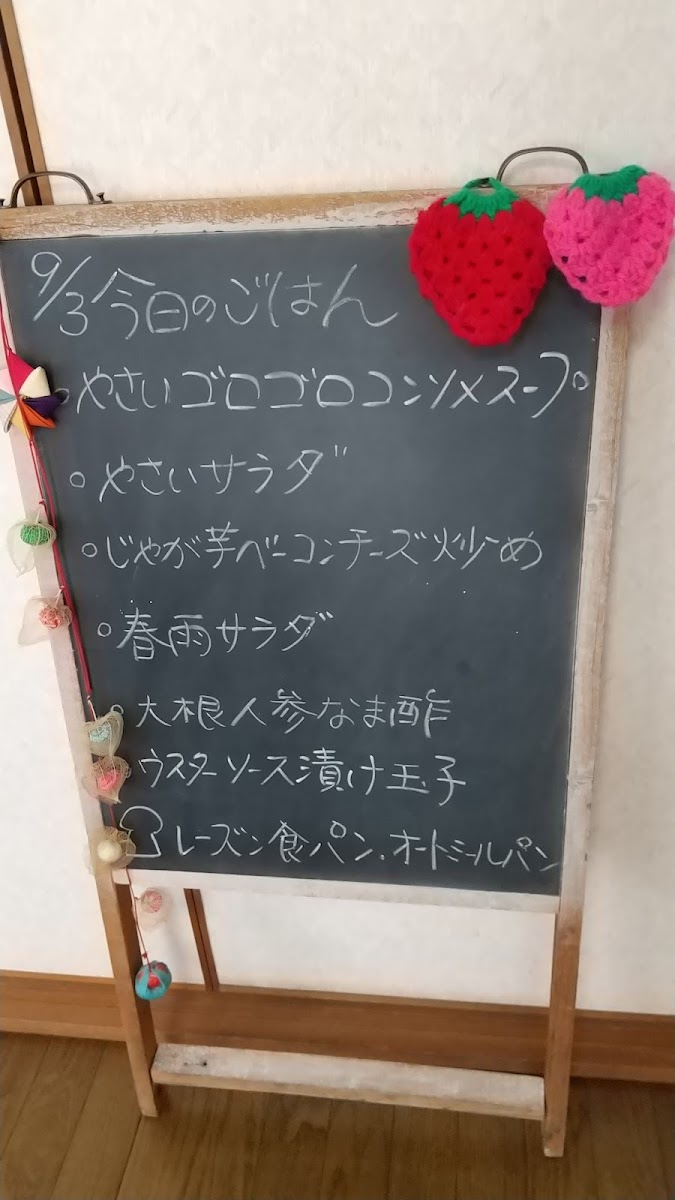 9/3今日のごはん
○やさいゴロゴロコンソメスープ
○やさいサラダ
○じゃが芋ベーコンチーズ炒め
○春雨サラダ
○大根人参なま酢
ウスターソース漬け玉子
レーズン食パン.オートミールパン